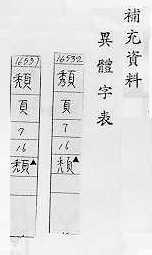 補充資料
異體字表
16532
頁
7
16
16531
頹
頁
7
16
頹▲